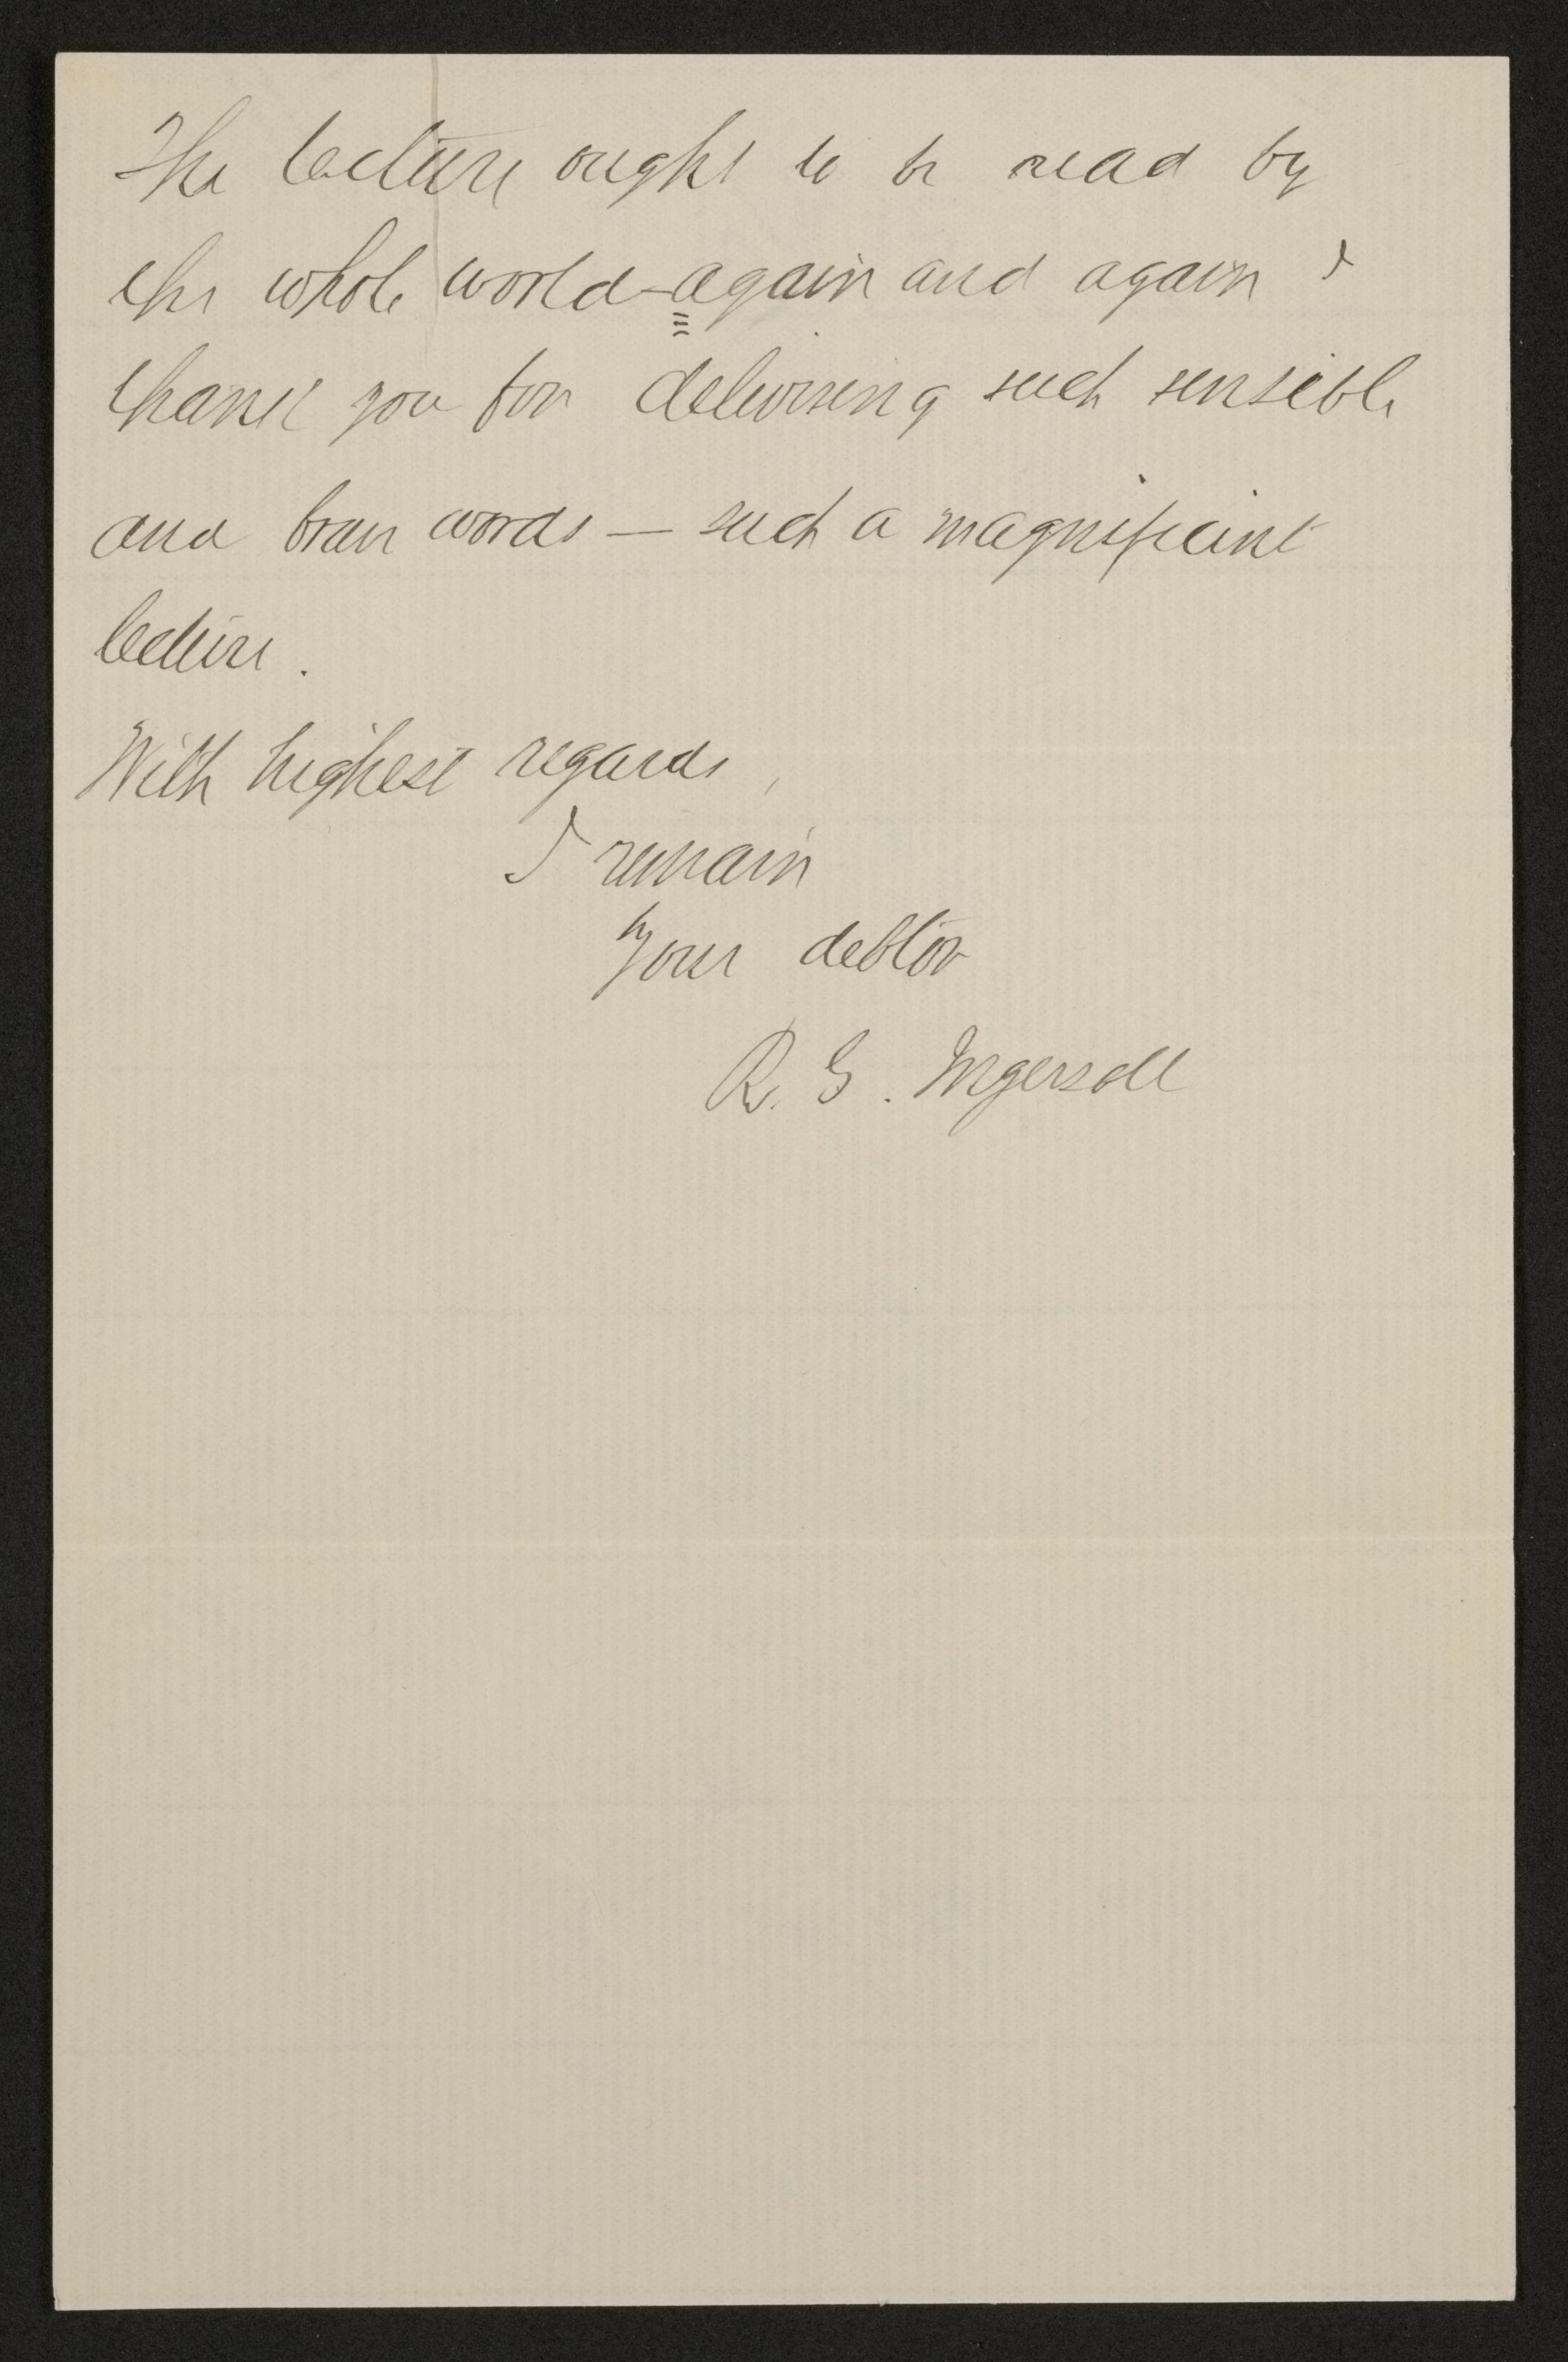 The lecture ought to be read by
the whole world—again and again I
thank you for delivering such sensible
and brave words — such a magnificent
lecture.
With highest regards,
I remain
Your debtor
R. G. Ingersoll